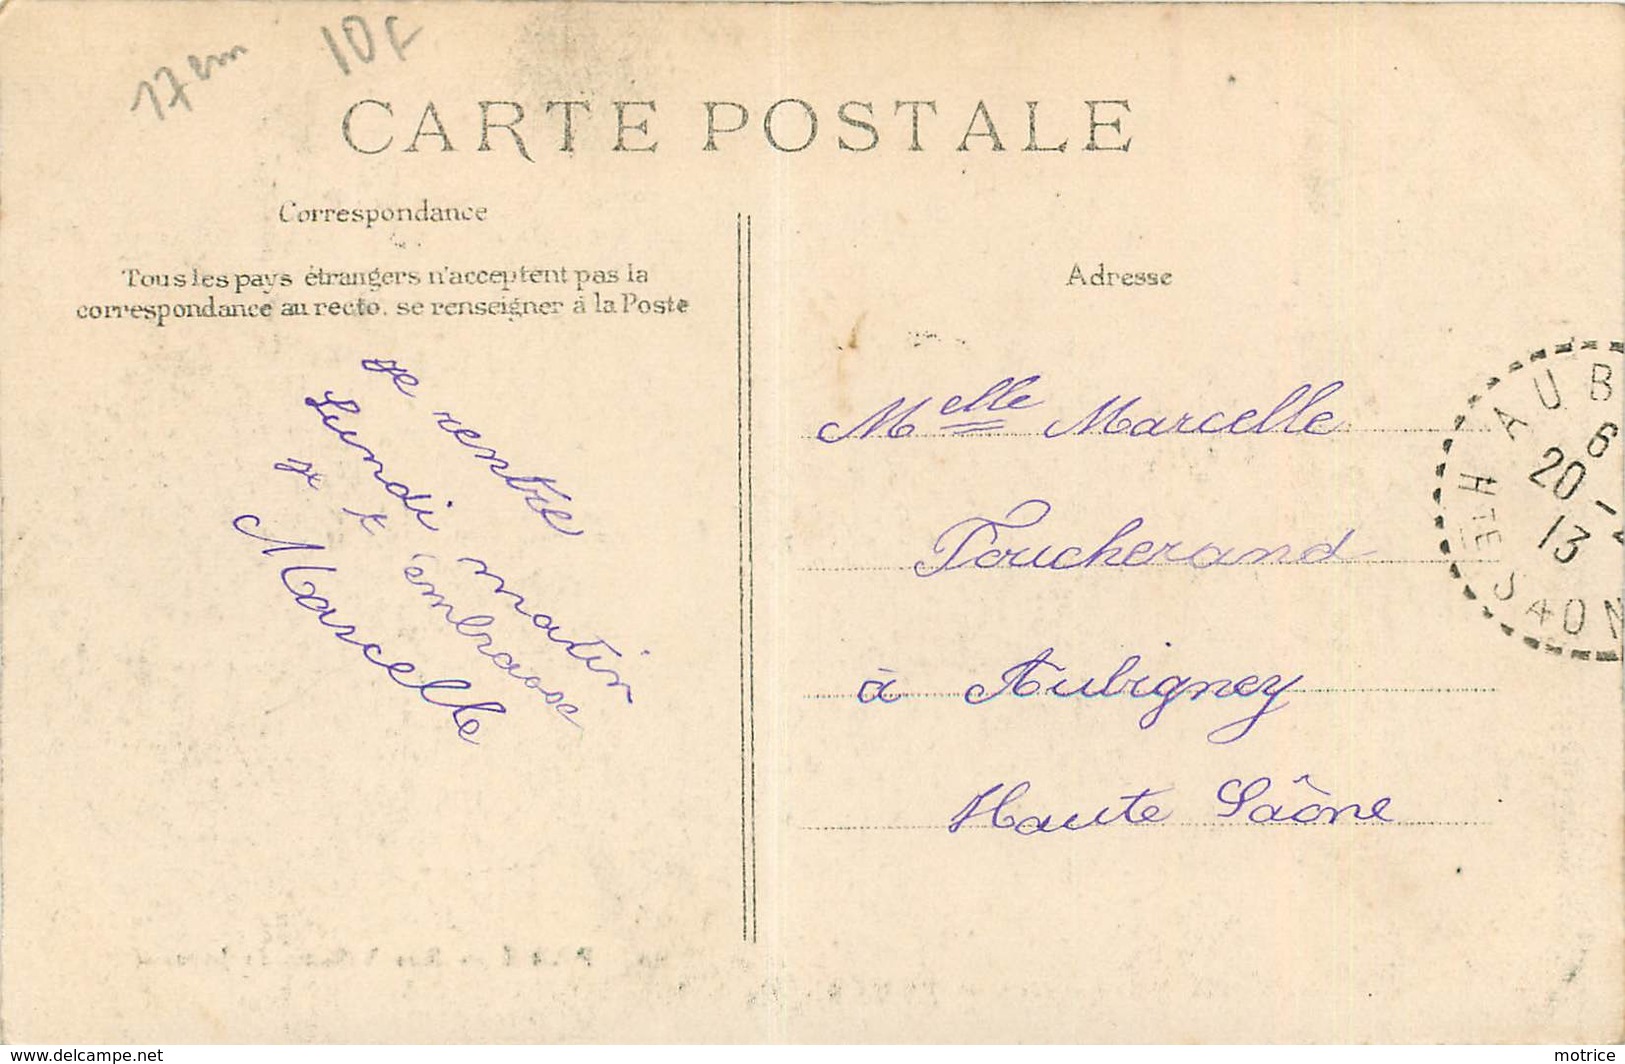 17em 10f
CARTE POSTALE
Correspondance
Tous les pays étrangers n'acceptent pas la
correspondance au recto, se renseigner à la Poste
Adresse
Je rentre
Lundi matin
Je t'embrasse
Marcelle
Melle Marcelle
Toucherand
à Aubigney
Haute Saône
AUB
6
20 -2
13
HTE SAON
www.delcampe.net
motrice